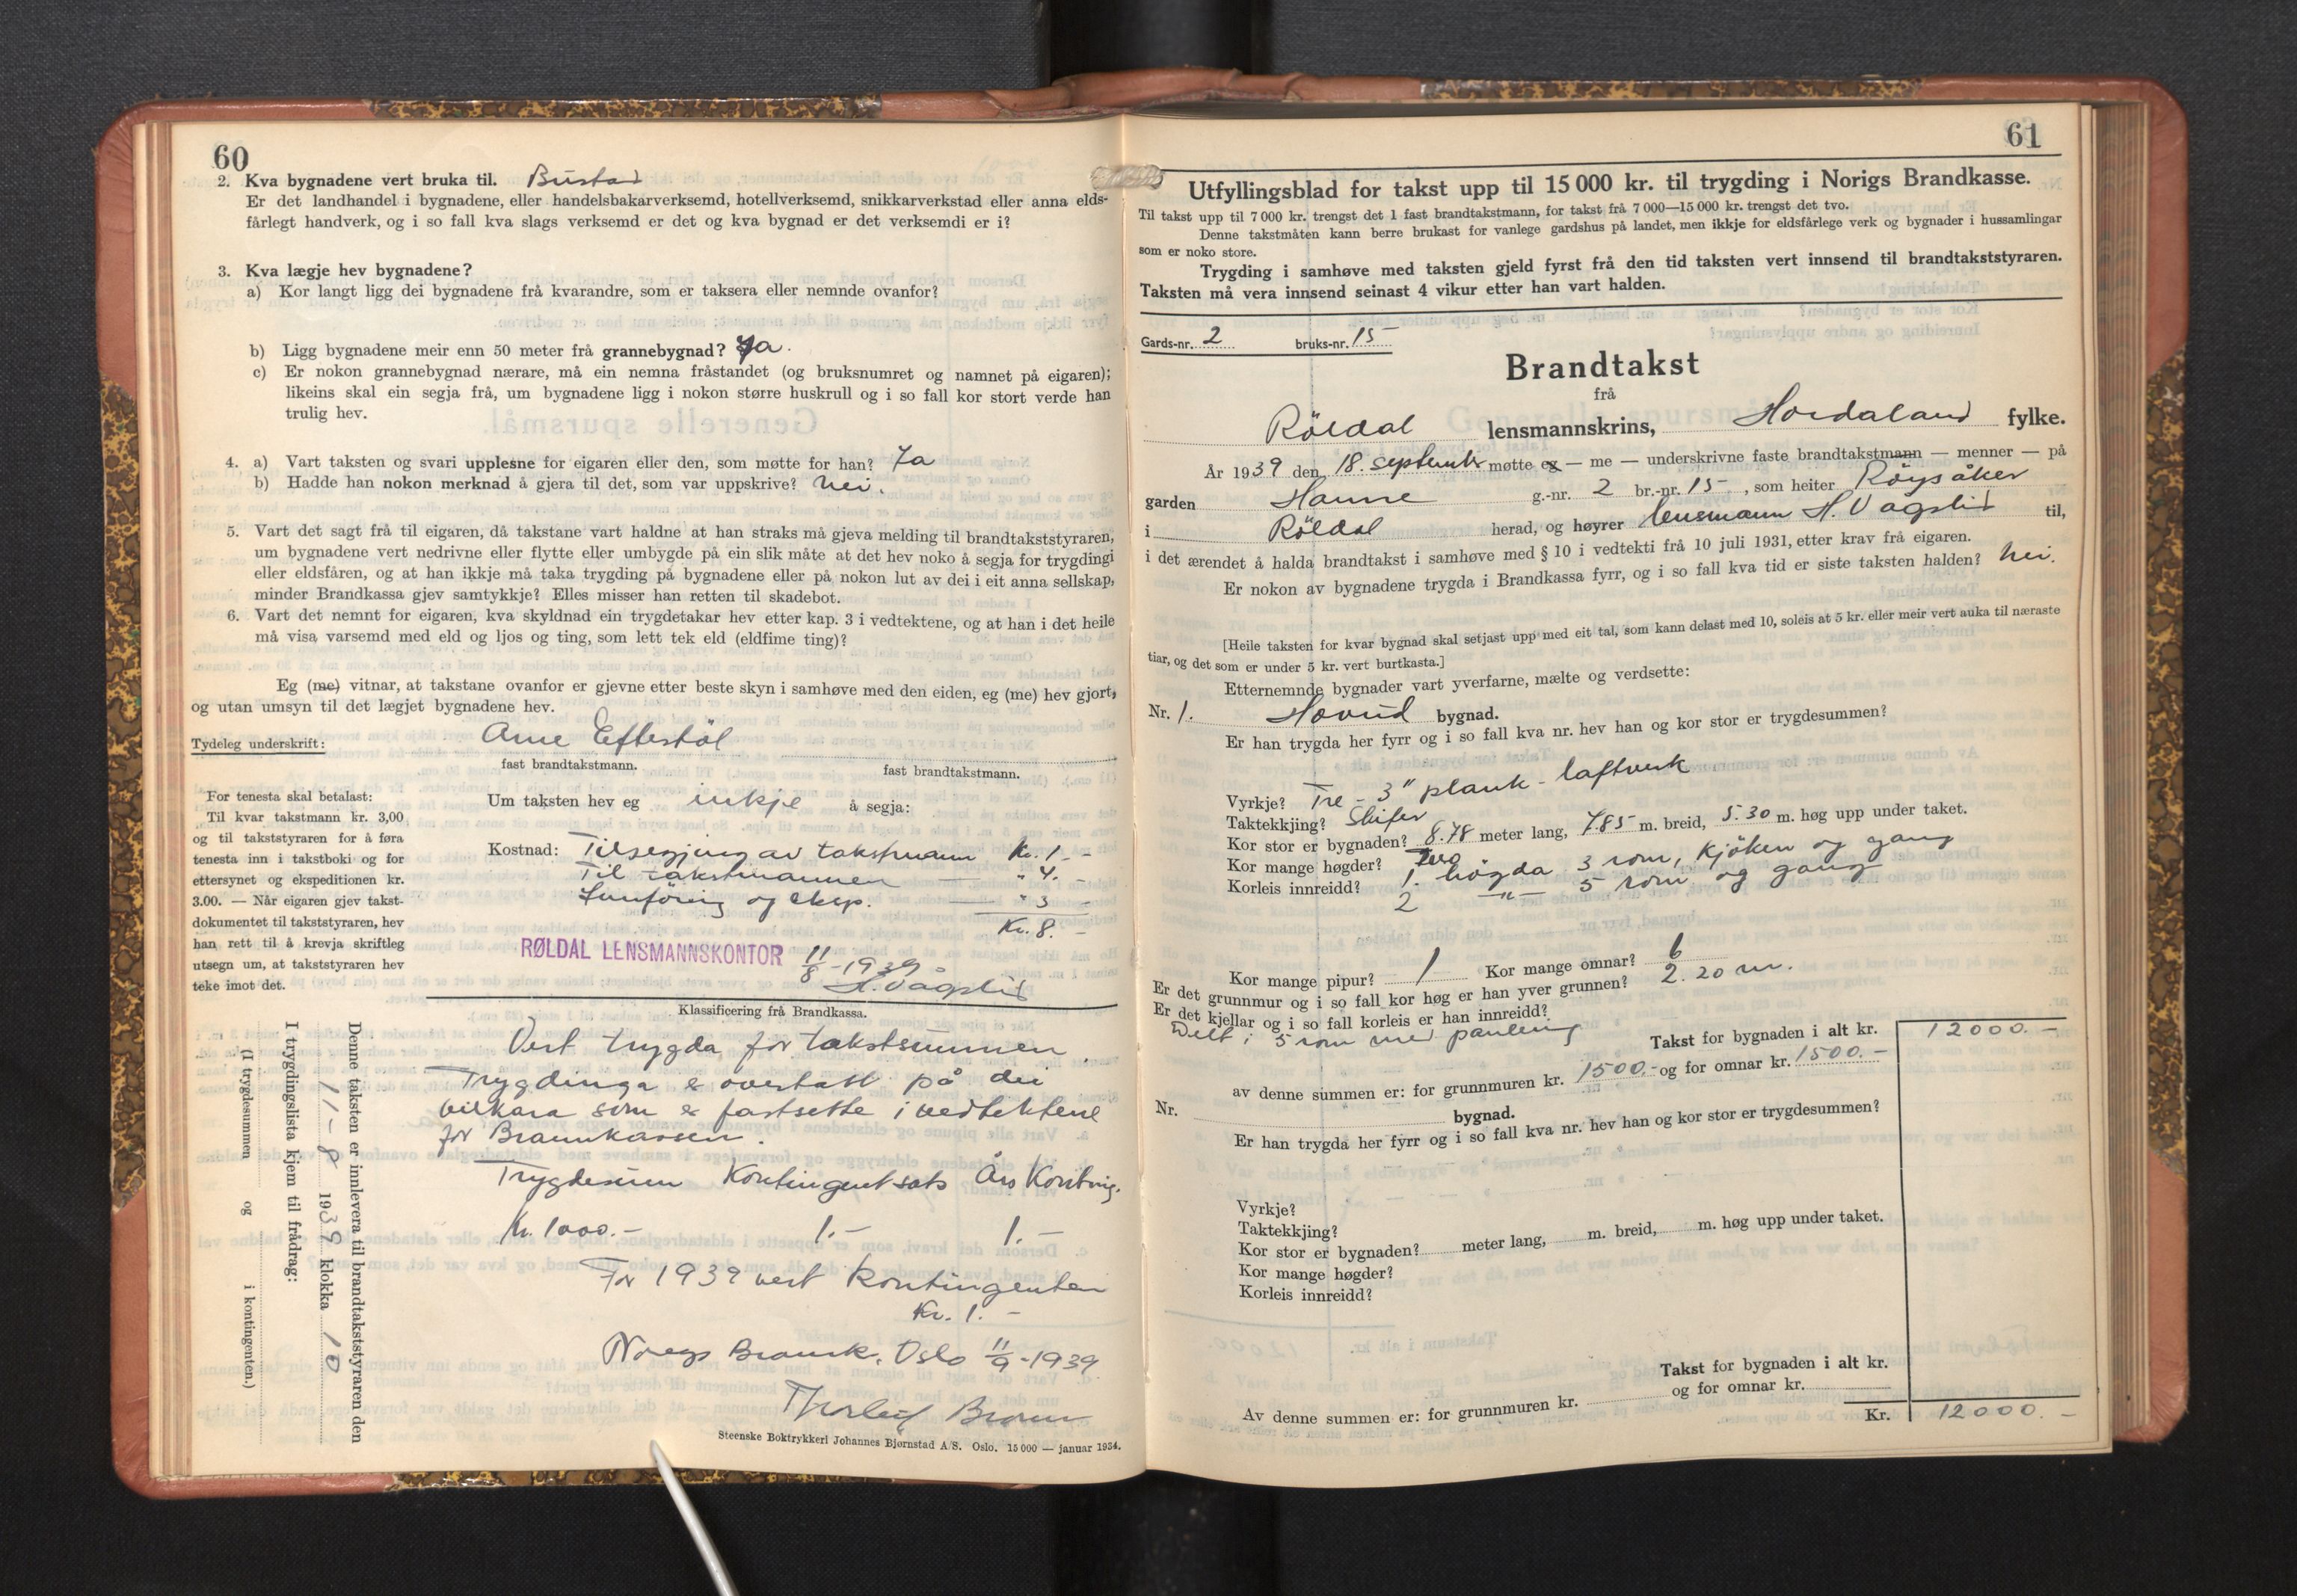 60
2. Kva bygnadene vert bruka til. Bustad
Er det landhandel i bygnadene, eller handelsbakarverksemd, hotellverksemd, snikkarverkstad eller anna elds-
fårlegt handverk, og i so fall kva slags verksemd er det og kva bygnad er det verksemdi er i?
3. Kva lægje hev bygnadene?
a) Kor langt ligg dei bygnadene frå kvarandre, som er taksera eller nemnde ovanfor?
b) Ligg bygnadene meir enn 50 meter frå grannebygnad? Ja.
c) Er nokon grannebygnad nærare, må ein nemna fråstandet (og bruksnumret og namnet på eigaren);
likeins skal ein segja frå, um bygnadene ligg i nokon større huskrull og i so fall kor stort verde han
trulig hev.
4. a) Vart taksten og svari upplesne for eigaren eller den, som møtte for han? Ja
b) Hadde han nokon merknad å gjera til det, som var uppskrive? Nei.
5. Vart det sagt frå til eigaren, då takstane vart haldne at han straks må gjeva melding til brandtakststyraren,
um bygnadene vert nedrivne eller flytte eller umbygde på ein slik måte at det hev noko å segja for trygdingi
eller eldsfåren, og at han ikkje må taka trygding på bygnadene eller på nokon lut av dei i eit anna sellskap,
minder Brandkassa gjev samtykkje? Elles misser han retten til skadebot.
6. Vart det nemnt for eigaren, kva skyldnad ein trygdetakar hev etter kap. 3 i vedtektene, og at han i det heile
må visa varsemd med eld og ljos og ting, som lett tek eld (eldfime ting)?
Eg (me) vitnar, at takstane ovanfor er gjevne etter beste skyn i samhøve med den eiden, eg (me) hev gjort,
og utan umsyn til det lægjet bygnadene hev.
Tydeleg underskrift: Arne Eftestöl
fast brandtakstmann. fast brandtakstmann.
For tenesta skal betalast:
Til kvar takstmann kr. 3,00
og til takststyraren for å føra
tenesta inn i takstboki og for
ettersynet og ekspeditionen kr.
3.00. — Når eigaren gjev takst-
dokumentet til takststyraren, hev
han rett til å krevja skriftleg
utsegn um, at takststyraren hev
teke imot det.
Um taksten hev eg inkje å segja:
Kostnad: Tilsegjing av takstmann Kr. 1.-
Til takstmannen — " 4.-
Innföring og eksp. — " 3 -
Kr. 8.-
RØLDAL LENSMANNSKONTOR 11/8 -1939
H. Vågslid
Klassificering frå Brandkassa.
Vert trygda for takstsummen.
Trygdinga er overtatt på dei
vilkåra som er fastsette i vedtektene
for Brannkassen.
Trygdesum Kontingentsats Års Konting.
Kr. 1000.- 1.- 1.-
For 1939 vert kontingenten
Kr. 1.-
Noregs Brannk. Oslo 11/9-1939
Steenske Boktrykkeri Johannes Bjørnstad A/S. Oslo. 15 000 — januar 1934.
Denne taksten er innlevera til brandtakststyraren den
11-8 1939 klokka 10
I trygdingslista kjem til frådrag:
(I trygdesummen og i kontingenten.)
61
Utfyllingsblad for takst upp til 15 000 kr. til trygding i Norigs Brandkasse.
Til takst upp til 7 000 kr. trengst det 1 fast brandtakstmann, for takst frå 7 000—15 000 kr. trengst det tvo.
Denne takstmåten kann berre brukast for vanlege gardshus på landet, men ikkje for eldsfårlege verk og bygnader i hussamlingar
som er noko store.
Trygding i samhøve med taksten gjeld fyrst frå den tid taksten vert innsend til brandtakststyraren.
Taksten må vera innsend seinast 4 vikur etter han vart halden.
Gards-nr. 2 bruks-nr. 15
Brandtakst
frå
Röldal lensmannskrins, Hordaland fylke.
År 1939 den 18. september møtte eg — me — underskrivne faste brandtakstmann — menner — på
garden Hamre g.-nr. 2 br.-nr. 15, som heiter Röysåker
i Röldal herad, og høyrer lensmann H. Vågslid til,
i det ærendet å halda brandtakst i samhøve med § 10 i vedtekti frå 10 juli 1931, etter krav frå eigaren.
Er nokon av bygnadene trygda i Brandkassa fyrr, og i so fall kva tid er siste taksten halden? Nei.
[Heile taksten for kvar bygnad skal setjast upp med eit tal, som kann delast med 10, soleis at 5 kr. eller meir vert auka til næraste
tiar, og det som er under 5 kr. vert burtkasta.]
Etternemnde bygnader vart yverfarne, mælte og verdsette:
Nr. 1. Hovud bygnad.
Er han trygda her fyrr og i so fall kva nr. hev han og kor stor er trygdesummen?
Vyrkje? Tre - 3" plank - laftverk
Taktekkjing? Skifer
Kor stor er bygnaden? 8.78 meter lang, 7.85 m. breid, 5.30 m. høg upp under taket.
Kor mange høgder? Tvo
Korleis innreidd? 1. högda 3 rom, kjöken og gang
2 —"— 5 rom og gang
Kor mange pipur? 1 Kor mange omnar? 6
Er det grunnmur og i so fall kor høg er han yver grunnen? 2.20 m.
Er det kjellar og i so fall korleis er han innreidd?
Delt i 5 rom med paneling
Takst for bygnaden i alt kr. 12000.-
av denne summen er: for grunnmuren kr. 1500.- og for omnar kr. 1500.-
Nr. bygnad.
Er han trygda her fyrr og i so fall kva nr. hev han og kor stor er trygdesummen?
Vyrkje?
Taktekkjing?
Kor stor er bygnaden? meter lang, m. breid, m. høg upp under taket.
Kor mange høgder?
Korleis innreidd?
Takst for bygnaden i alt kr.
Av denne summen er: for grunnmuren kr. og for omnar kr.
Kr. 12000.-